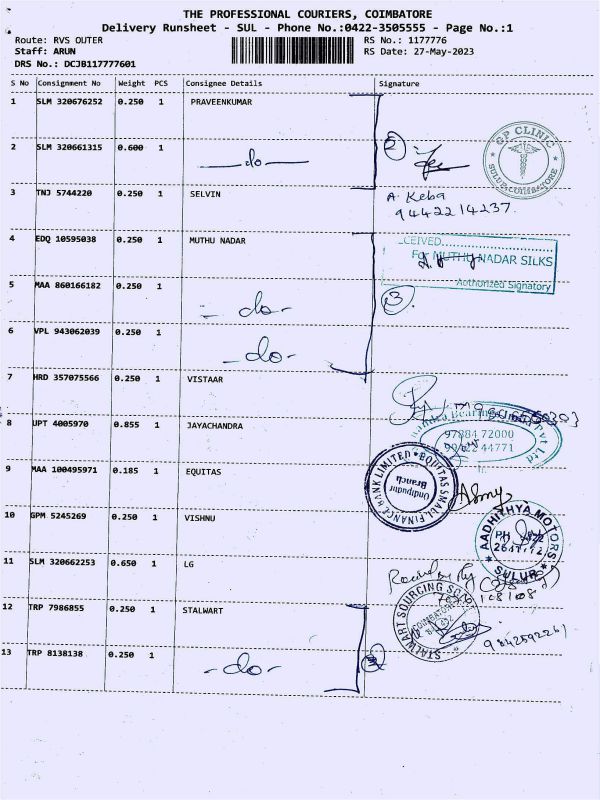 THE PROFESSIONAL COURIERS, COIMBATORE
Delivery Runsheet - SUL - Phone No.:0422-3505555 - Page No.:1
Route: RVS OUTER
RS No.: 1177776
Staff: ARUN
RS Date: 27-May-2023
DRS No.: DCJB117777601
S No Consignment No Weight PCS Consignee Details Signature
1 SLM 320676252 0.250 1 PRAVEENKUMAR
GP CLINIC
SULUR, COIMBATORE
2 SLM 661315 0.600 1 -do- 2
3 TNJ 5744220 0.250 1 SELVIN A. Keba
9442214237.
4 EDQ 10595038 0.250 1 MUTHU NADAR
CEIVED
For MUTHU NADAR SILKS
Authorized Signatory
5 MAA 860166182 0.250 1 -do- 3
6 VPL 943062039 0.250 1 -do-
7 HRD 357075566 0.250 1 VISTAAR
8 UPT 4005970 0.855 1 JAYACHANDRA
Pvt Ltd
97884 72000
44771
9 MAA 100495971 0.185 1 EQUITAS
EQUITAS SMALL FINANCE BANK LIMITED
Ondipudur
Branch
10 GPM 5245269 0.250 1 VISHNU
AADHITHYA MOTORS
PH
SULUR
11 SLM 320662253 0.650 1 LG
12 TRP 7986855 0.250 1 STALWART
STALWART SOURCING
COIMBATORE
13 TRP 8138138 0.250 1 -do- 2